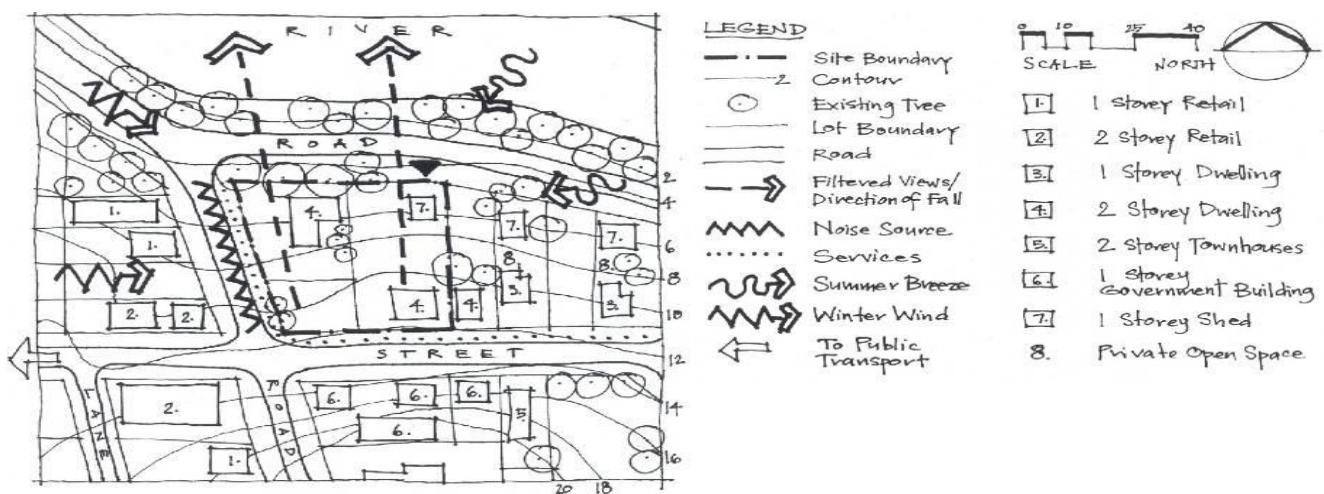 RIVER
ROAD
2
4
6
8
10
12
14
16
18
20
1.
1.
2.
2.
4.
7.
4.
4.
7.
7.
8
8.
3.
3.
STREET
LANE
ROAD
2.
1.
6.
6.
6.
6.
5.
LEGEND
Site Boundary
2 Contour
Existing Tree
Lot Boundary
Road
Filtered Views/
Direction of Fall
Noise Source
Services
Summer Breeze
Winter Wind
To Public
Transport
0 10 25 40
SCALE NORTH
1. 1 Storey Retail
2. 2 Storey Retail
3. 1 Storey Dwelling
4. 2 Storey Dwelling
5. 2 Storey Townhouses
6. 1 Storey
Government Building
7. 1 Storey Shed
8. Private Open Space